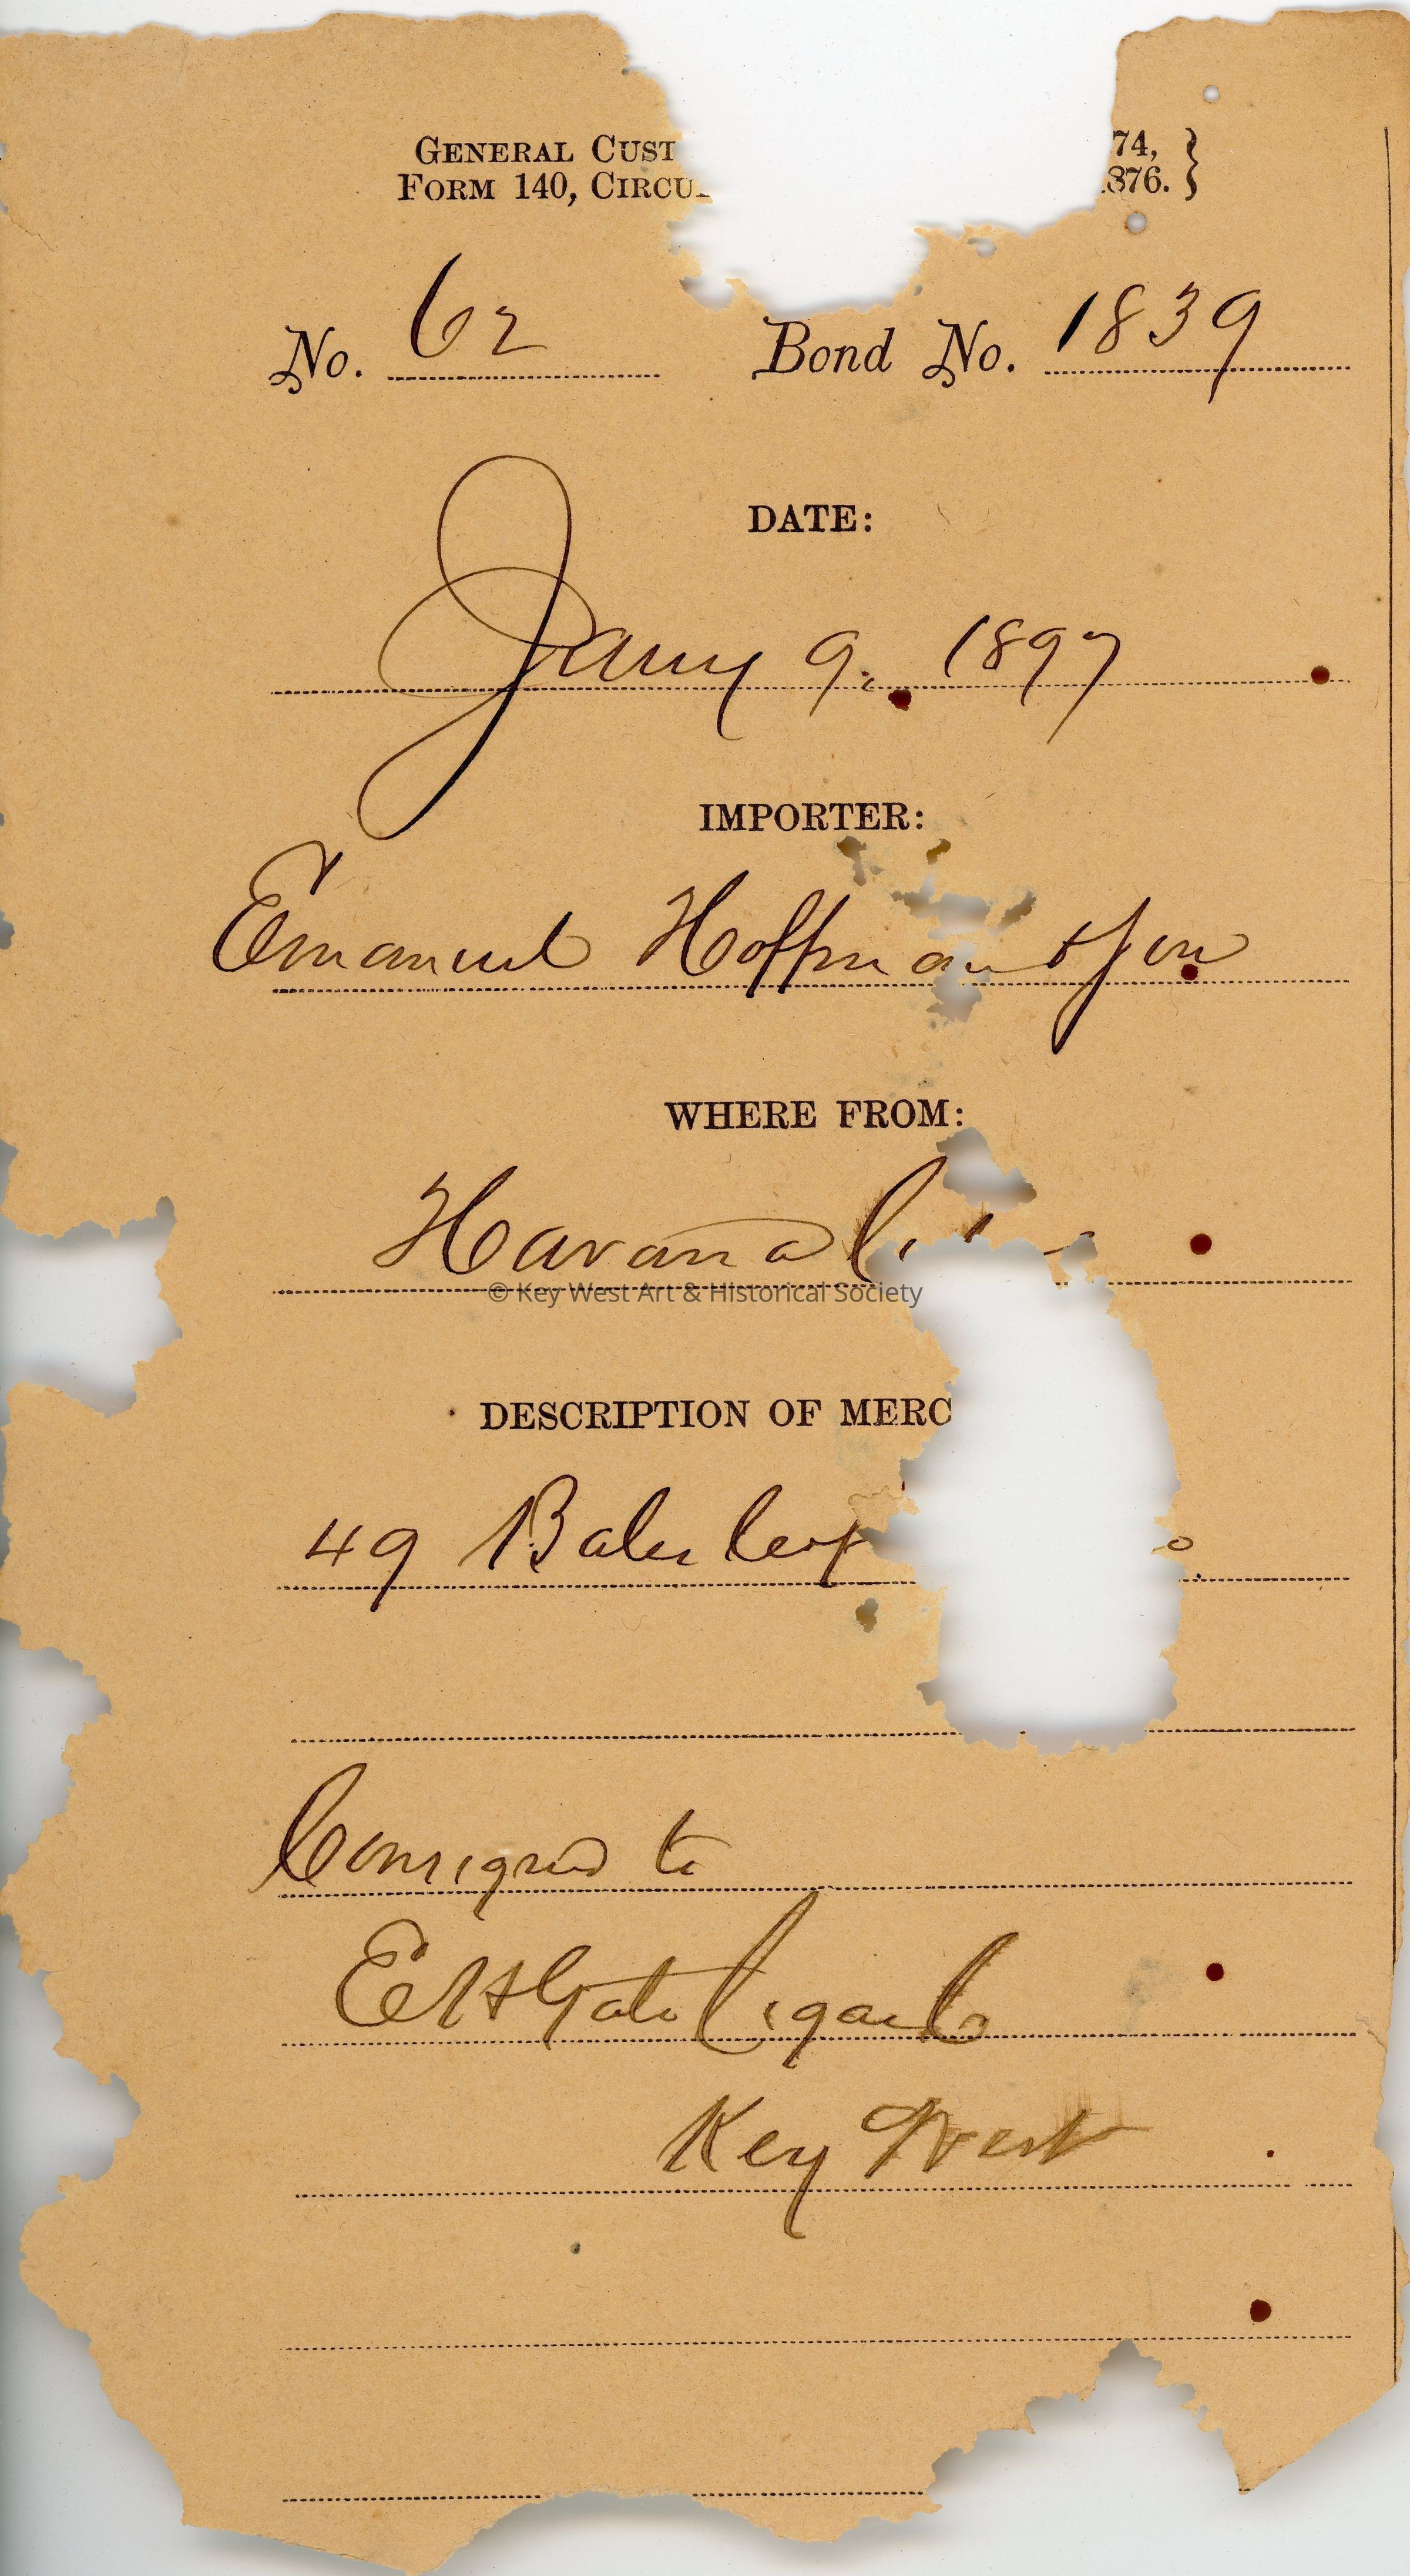 GENERAL CUST 74,
FORM 140, CIRCU 1876.
No. 62 Bond No. 1839
DATE:
Jany 9, 1897
IMPORTER:
Emanuel Hoffman & Son
WHERE FROM:
Havana
© Key West Art & Historical Society
DESCRIPTION OF MERC
49 Bales leaf
Consigned to
E H Gato Cigar Co
Key West